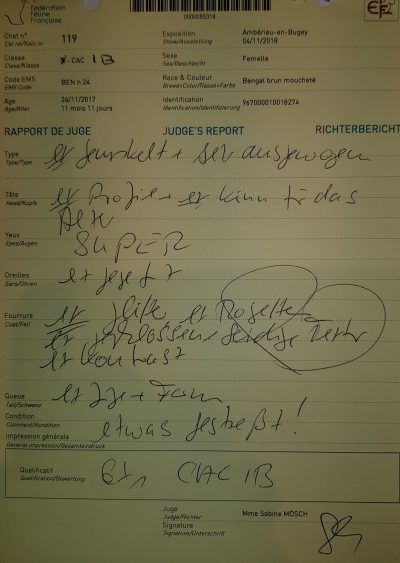 Fédération
Féline
Française
0000055318
Chat n° 119
Cat nb/Katz nr
Exposition Ambérieu-en-Bugey
Show/Ausstellung 04/11/2018
Classe CAC IB
Class/Klasse
Sexe Femelle
Sex/Geschlecht
Code EMS BEN n 24
EMS Code
Race & Couleur Bengal brun moucheté
Breed+Color/Rasse+Farbe
Age 24/11/2017
Age/Alter 11 mois 11 jours
Identification 967000010018274
Identification/Identifizierung
RAPPORT DE JUGE JUDGE'S REPORT RICHTERBERICHT
Type
Type/Type
ex + sehr ausgewogen
Tête
Head/Kopfe
ex Profil + ex Kinn für das
Alter
Yeux
Eyes/Augen
SUPER
Oreilles
Ears/Ohren
ex
Fourrure
Coat/Fell
ex ex Rosetten
ex
ex Kontrast
Queue
Tail/Schwanz
ex + Form
Condition
Comment/Kondition
etwas gestreßt!
Impression générale
General impression/Gesamteindruck
Qualificatif
Qualification/Bewertung
Ex 1 CAC IB
Juge Mme Sabine MÖSCH
Judge/Richter
Signature
Signature/Unterschrift